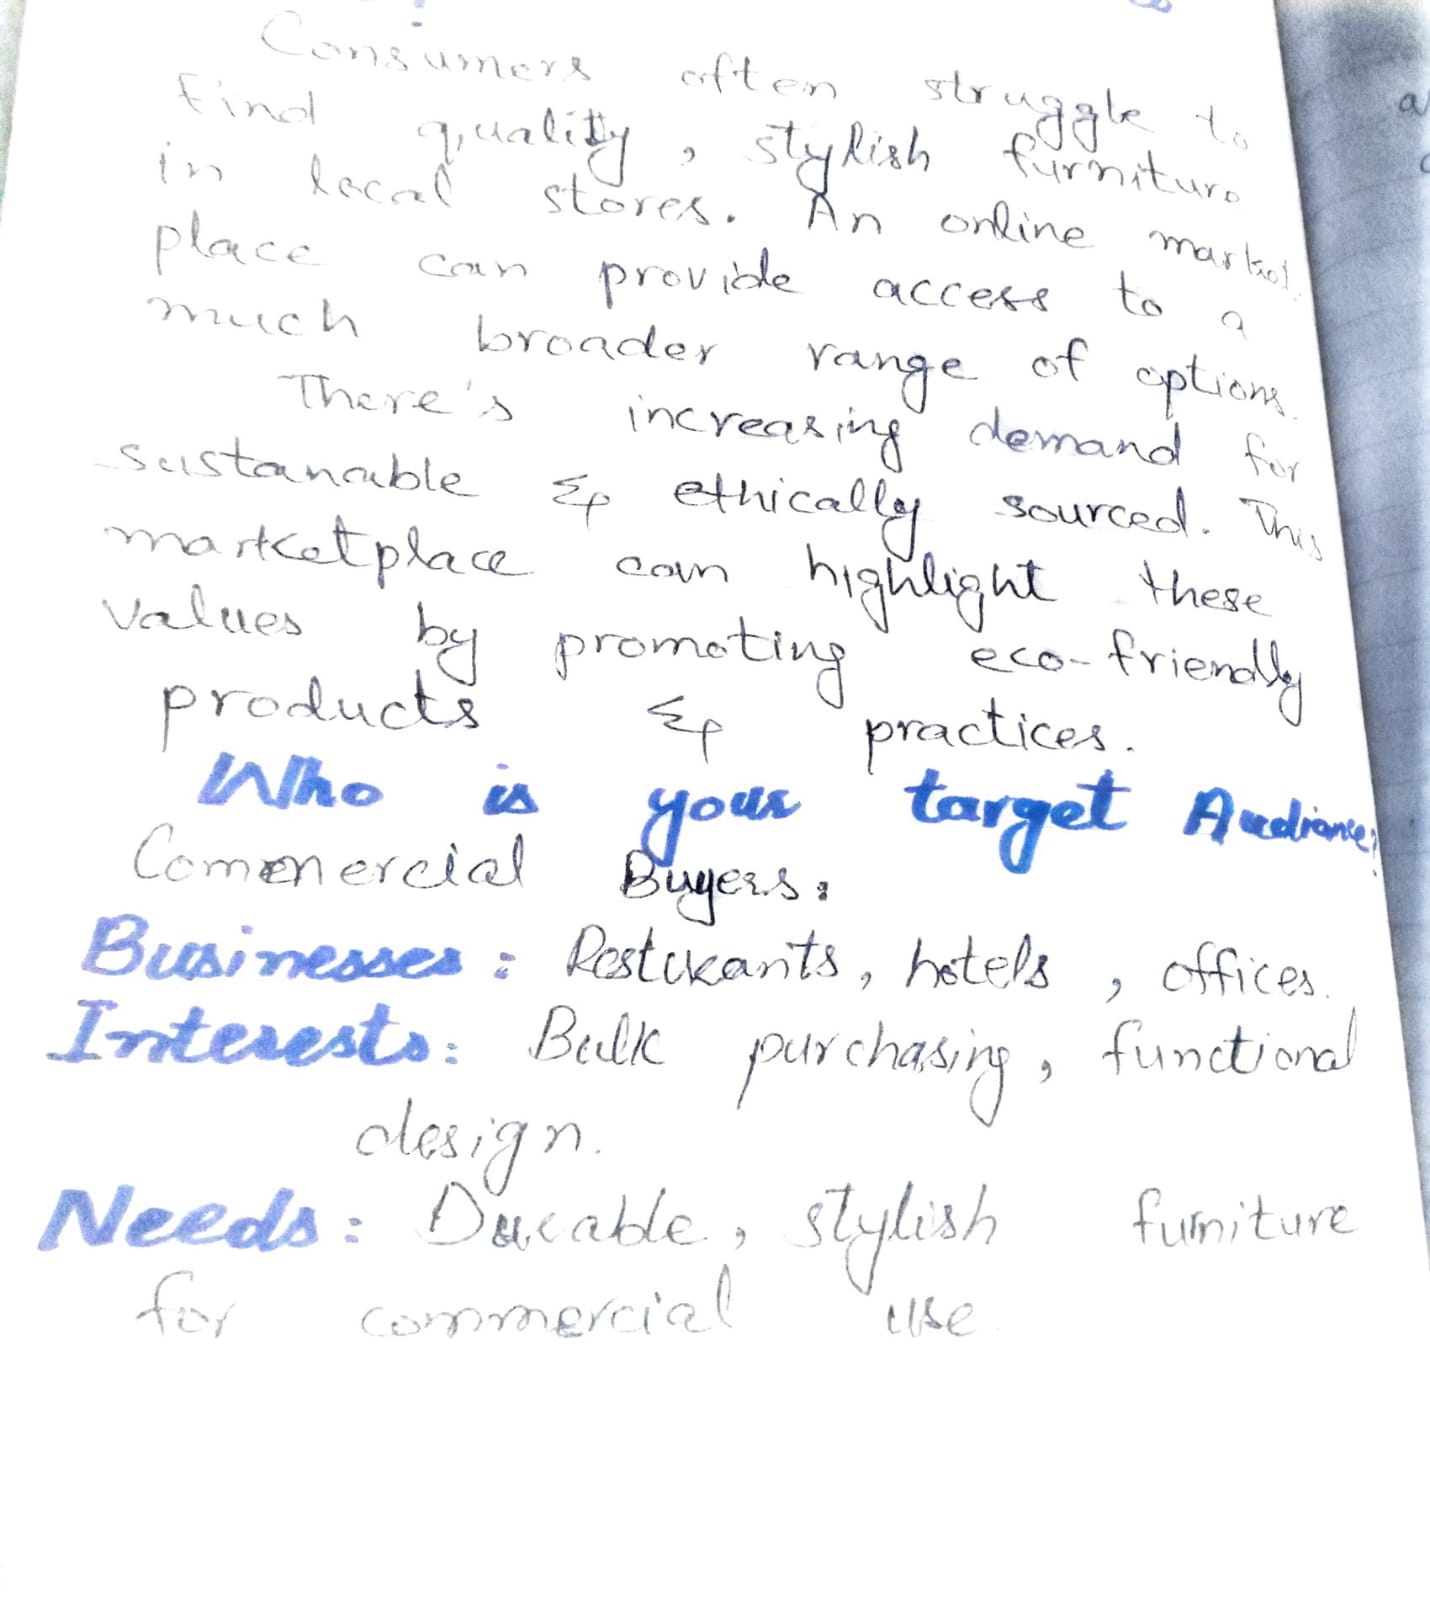 Consumers often struggle to
find quality, stylish furniture
in local stores. An online market
place can provide access to a
much broader range of options.
There's increasing demand for
sustanable & ethically sourced. This
marketplace can highlight these
values by promoting eco-friendly
products & practices.
Who is your target Audiance?
Commercial Buyers:
Businesses: Resturants, hotels, offices.
Interests: Bulk purchasing, functional
design.
Needs: Durable, stylish furniture
for commercial use